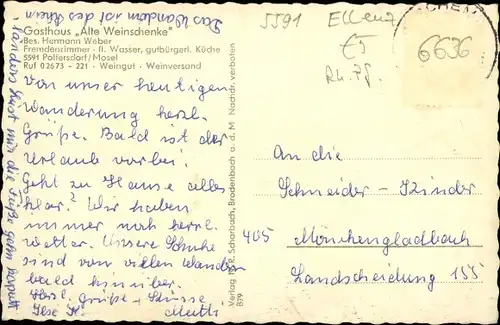 Gasthaus „Alte Weinschenke"
Bes. Hermann Weber
Fremdenzimmer · fl. Wasser, gutbürgerl. Küche
5591 Poltersdorf/Mosel
Ruf 02673 - 221 · Weingut · Weinversand
Von unser heutigen
Wanderung herzl.
Grüße. Bald ist der
Urlaub vorbei.
Geht zu Hause alles
klar? Wir haben
immer noch herrl.
Wetter. Unsere Schuhe
sind von vielen Wandern
bald hinüber.
Herzl. Grüße + Küsse
Ilse K. Mutti
Das Wandern ist des
nur die Füße gehn kaputt
Verlag R. Scharbach, Brodenbach a. d. M Nachdr. verboten
B79
5591 Ellenz
Rh. Pf.
6636
An die
Schneider - Kinder
405 Mönchengladbach
Landscheidung 155